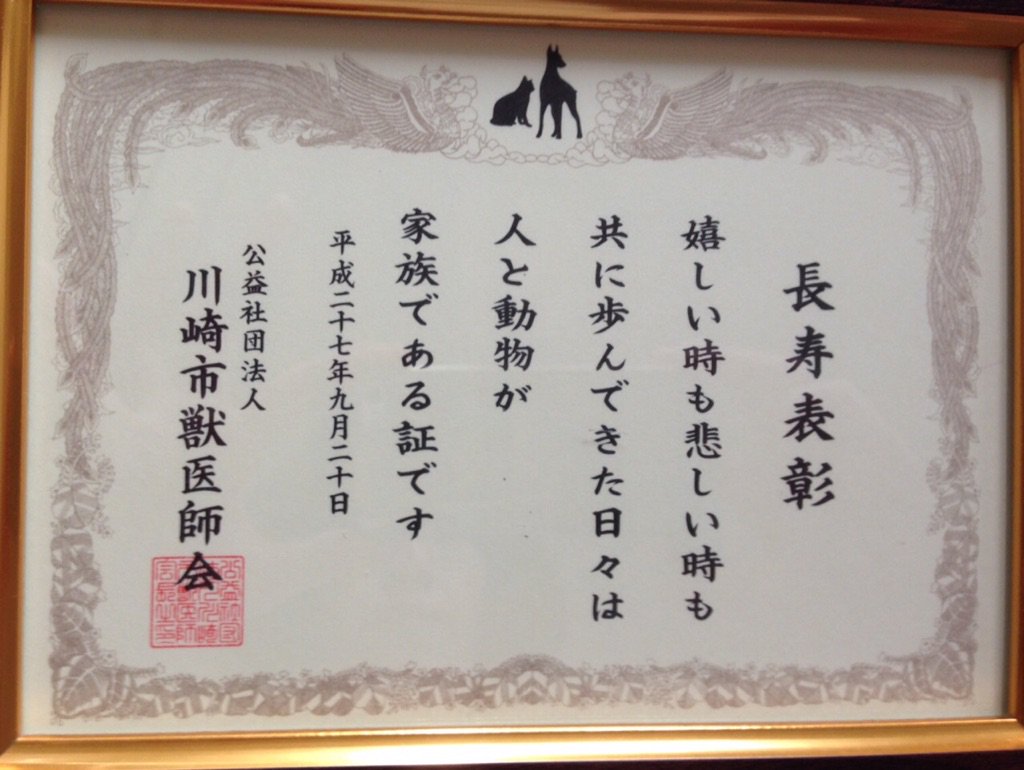 長寿表彰
嬉しい時も悲しい時も
共に歩んできた日々は
人と動物が
家族である証です
平成二十七年九月二十日
公益社団法人
川崎市獣医師会